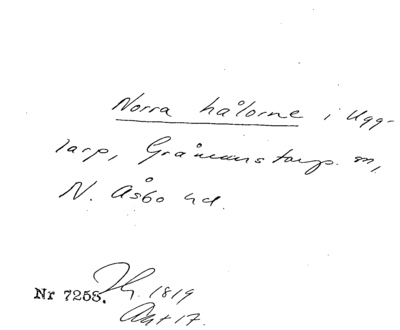 Norra hålorne i Ugg-
larp, Gråmanstorp. sn,
N. Åsbo hd.
Nr 7258. 1819
Akt 17.